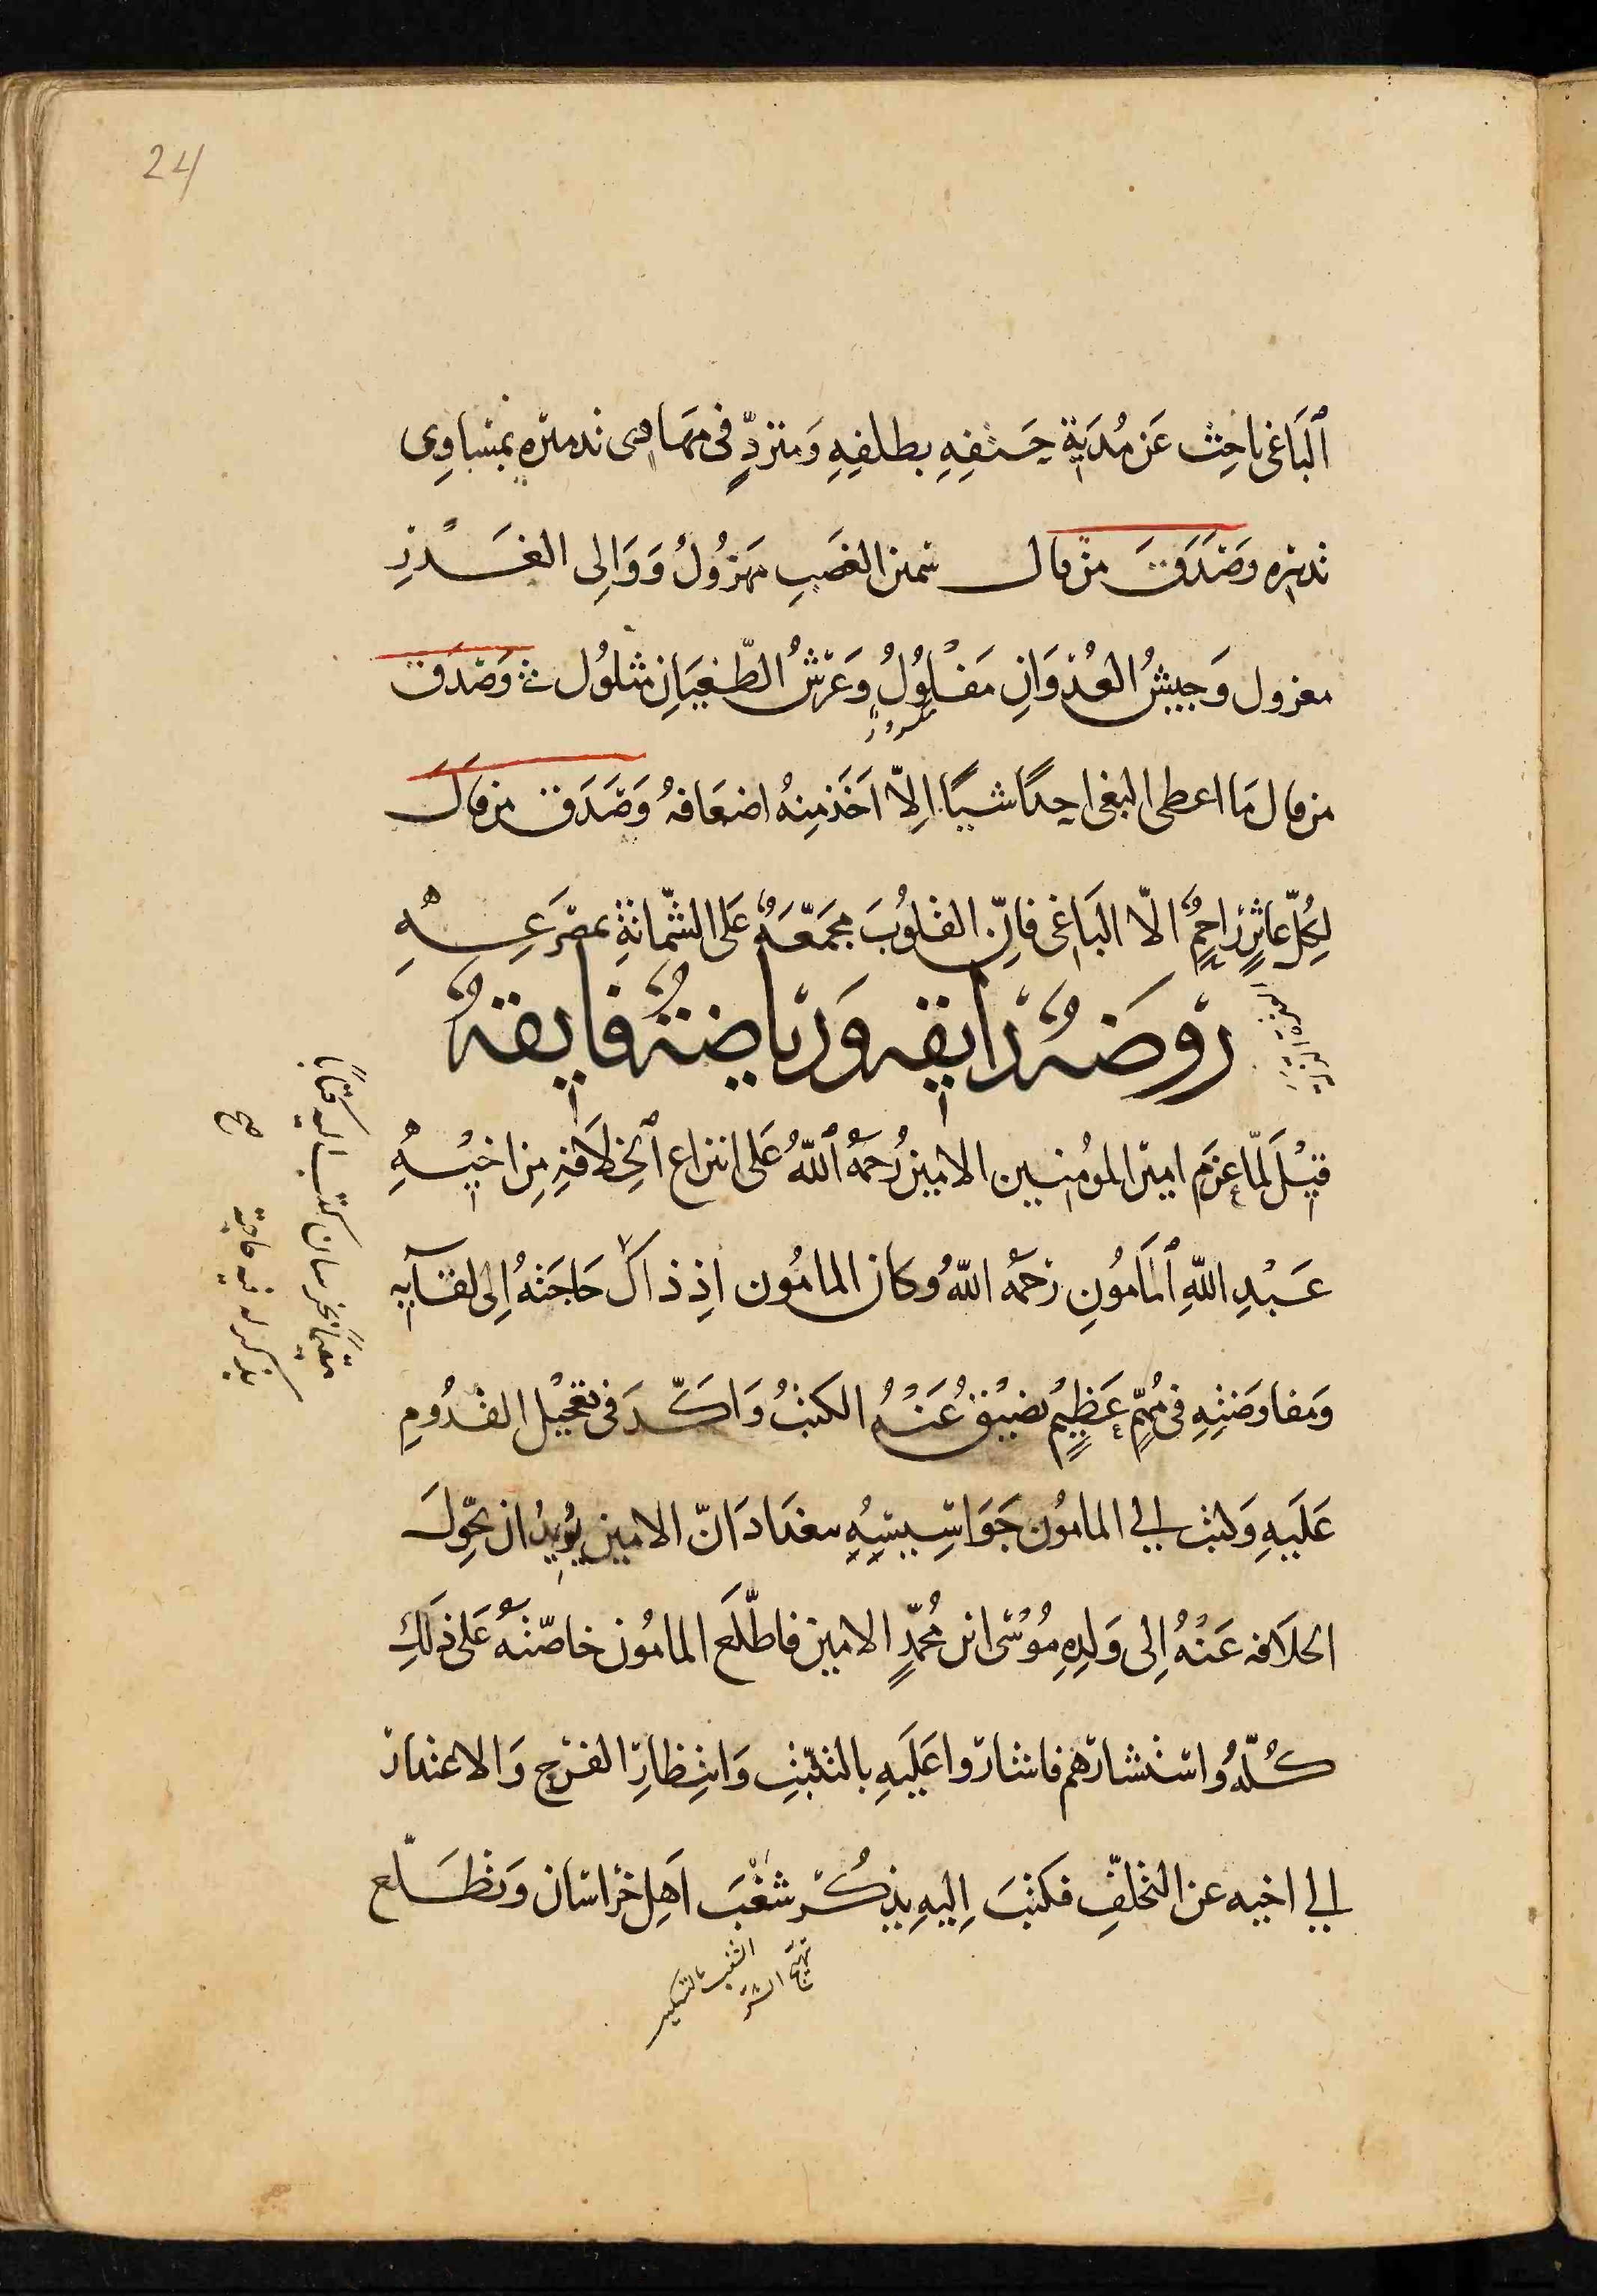 24
اَلبَاغى باحِث عَن مُدَيَةِ حَتفِهِ بظلفِهِ وَمتردٍّ في مهاوى تدميره بمساوِى
تدبيره وَصَدَقَ من قال سمين الغصَبِ مهزُولُ وَوَالِى الغَدْرِ
معزول وَجيشُ العُدْوَانِ مَفْلُولُ وَعَرشُ الطّغيَانِ مثلوُل وَصَدَق
مكسور
من قال مَا اعطى البغى احدًا شيًا اِلاّ اَخَذ مِنهُ اضعَافهُ وَصَدَق من قالَ
لِكُلّ عَاثرٍ رَاحِمٌ الاّ البَاغى فانّ القلوُبَ مجَمّعَةٌ عَلى الشّمَاتةِ بمصْرَعِهِ
رَوضَةٌ رَايقه وَرياضَةٌ فايقةٌ
قيْلَ لمّا عزَم امير المومنين الامين رَحمَهُ اَللّهُ عَلى انتزاع اَلخِلاَفةِ مِن اخيْهِ
كان بخرسان كتب اليه كتابًا
يذكر له فيه حاجة
صح
عَبْدِ اللّهِ اَلمَامُونِ رَحمَه اللّهُ وكان المامُون اِذ ذاكَ حَاجَتهُ اِلى لقآيه
وَمفاوضَتِهِ في مُهِمٍّ عَظِيمٍ تضيْقُ عَنْهُ الكتبُ وَاكّدَ في تعْجيْل القدُومِ
عَلَيهِ وَكتب الي المامُون جَوَاسِيسُهِ ببغدَاد اَنّ الامين يُريدُ ان يحّولَ
الخلاَفه عَنْهُ اِلى وَلدِهِ مُوسٰى ابن مُحمّدٍ الامين فاطّلعَ المامُون خاصّتَهُ عَلى ذلِكَ
كُلّهُ وَاستشارَهم فاشارُوا عَلَيهِ بالتثبّتِ وَانتِظارِ الفرَج وَالاعتذار
الي اخيه عن التخلّفِ فكتبَ اِليهِ يذكُر شغْبَ اَهلِ خرَاسَان وَتطَلّع
الشغب بالتسكين
تهيج الشر